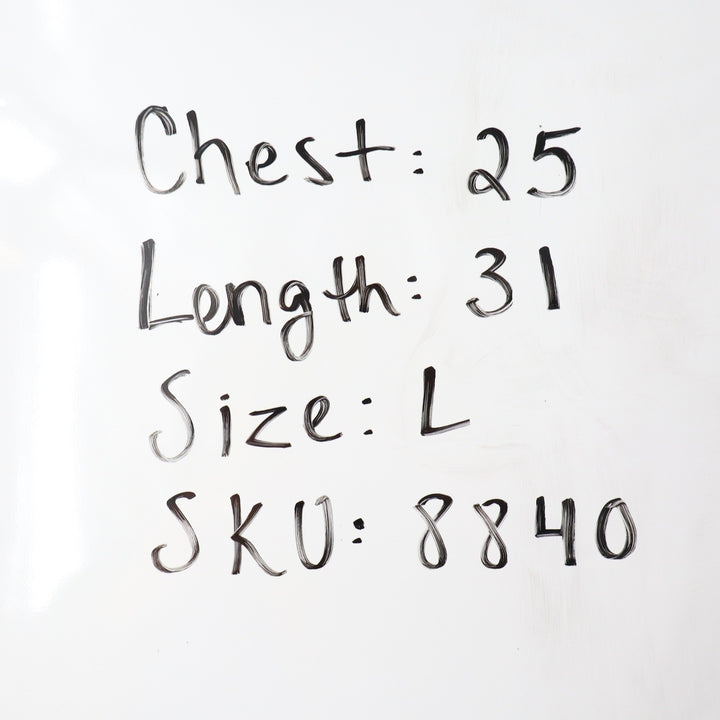 Chest: 25
Length: 31
Size: L
SKU: 8840